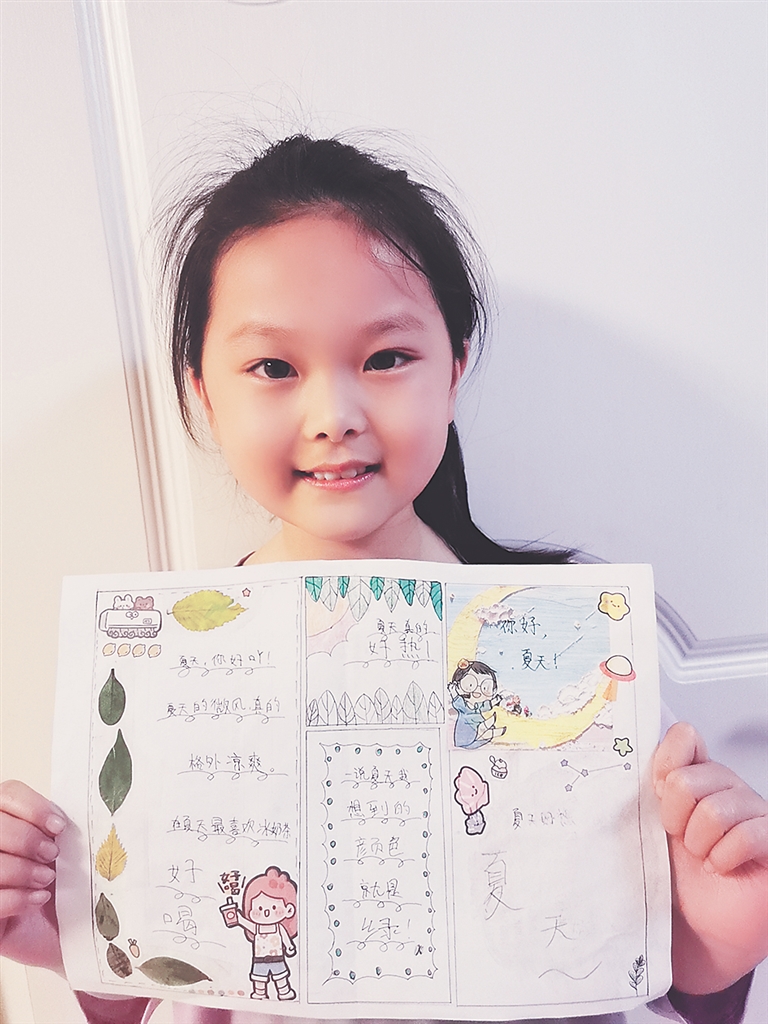 夏天,你好吖!
夏天的微风真的
格外凉爽。
在夏天最喜欢冰奶茶
好
喝
好喝
夏天真的
好热!
一说夏天我
想到的
颜色
就是
绿!
你好,
夏天!
夏
天